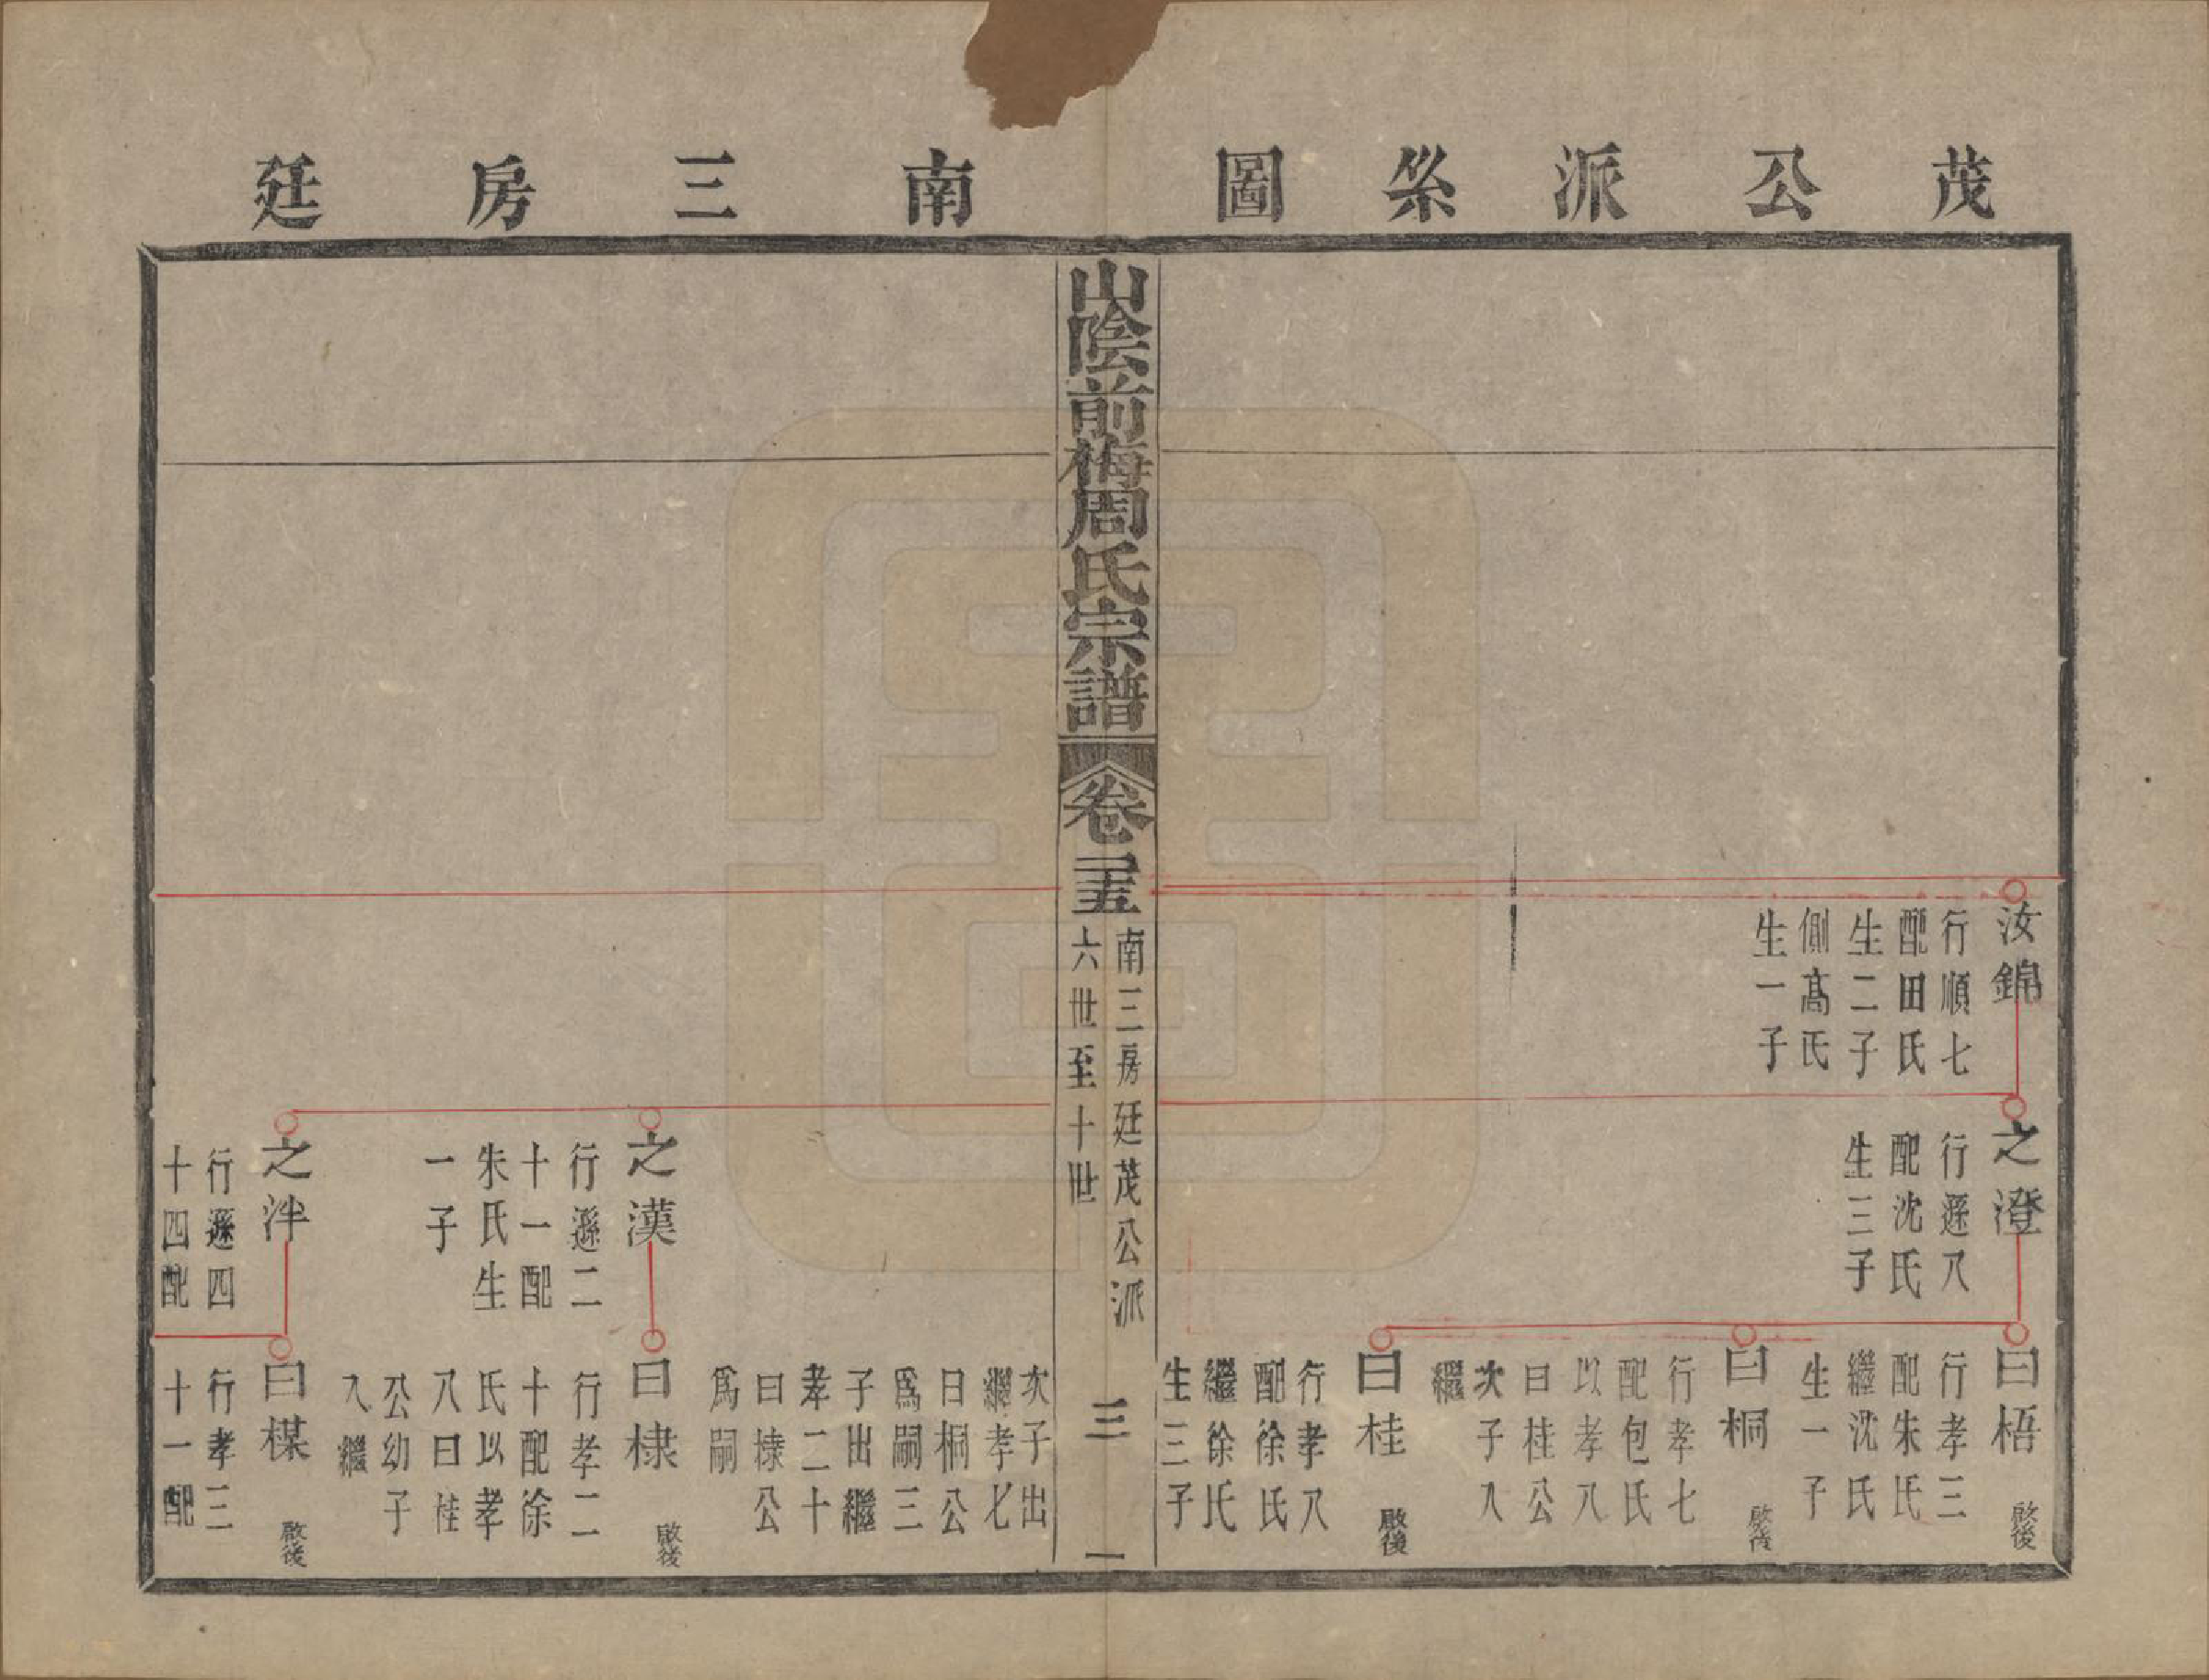 茂公派系圖
汝錦
行順七
配田氏
生二子
側高氏
生一子
之澄
行遜八
配沈氏
生三子
曰梧
啟後
行孝三
配朱氏
繼沈氏
生一子
曰桐
啟後
行孝七
配包氏
以孝八
曰桂公
次子入
繼
曰桂
啟後
行孝八
配徐氏
繼徐氏
生三子
山陰前梅周氏宗譜
卷二十五
南三房廷茂公派
六世至十世
三
一
南三房廷
次子出
繼孝七
曰桐公
爲嗣三
子出繼
孝二十
曰棣公
爲嗣
之漢
行遜二
十一配
朱氏生
一子
曰棣
啟後
行孝二
十配徐
氏以孝
八曰桂
公幼子
入繼
之泮
行遜四
十四配
曰楳
啟後
行孝三
十一配